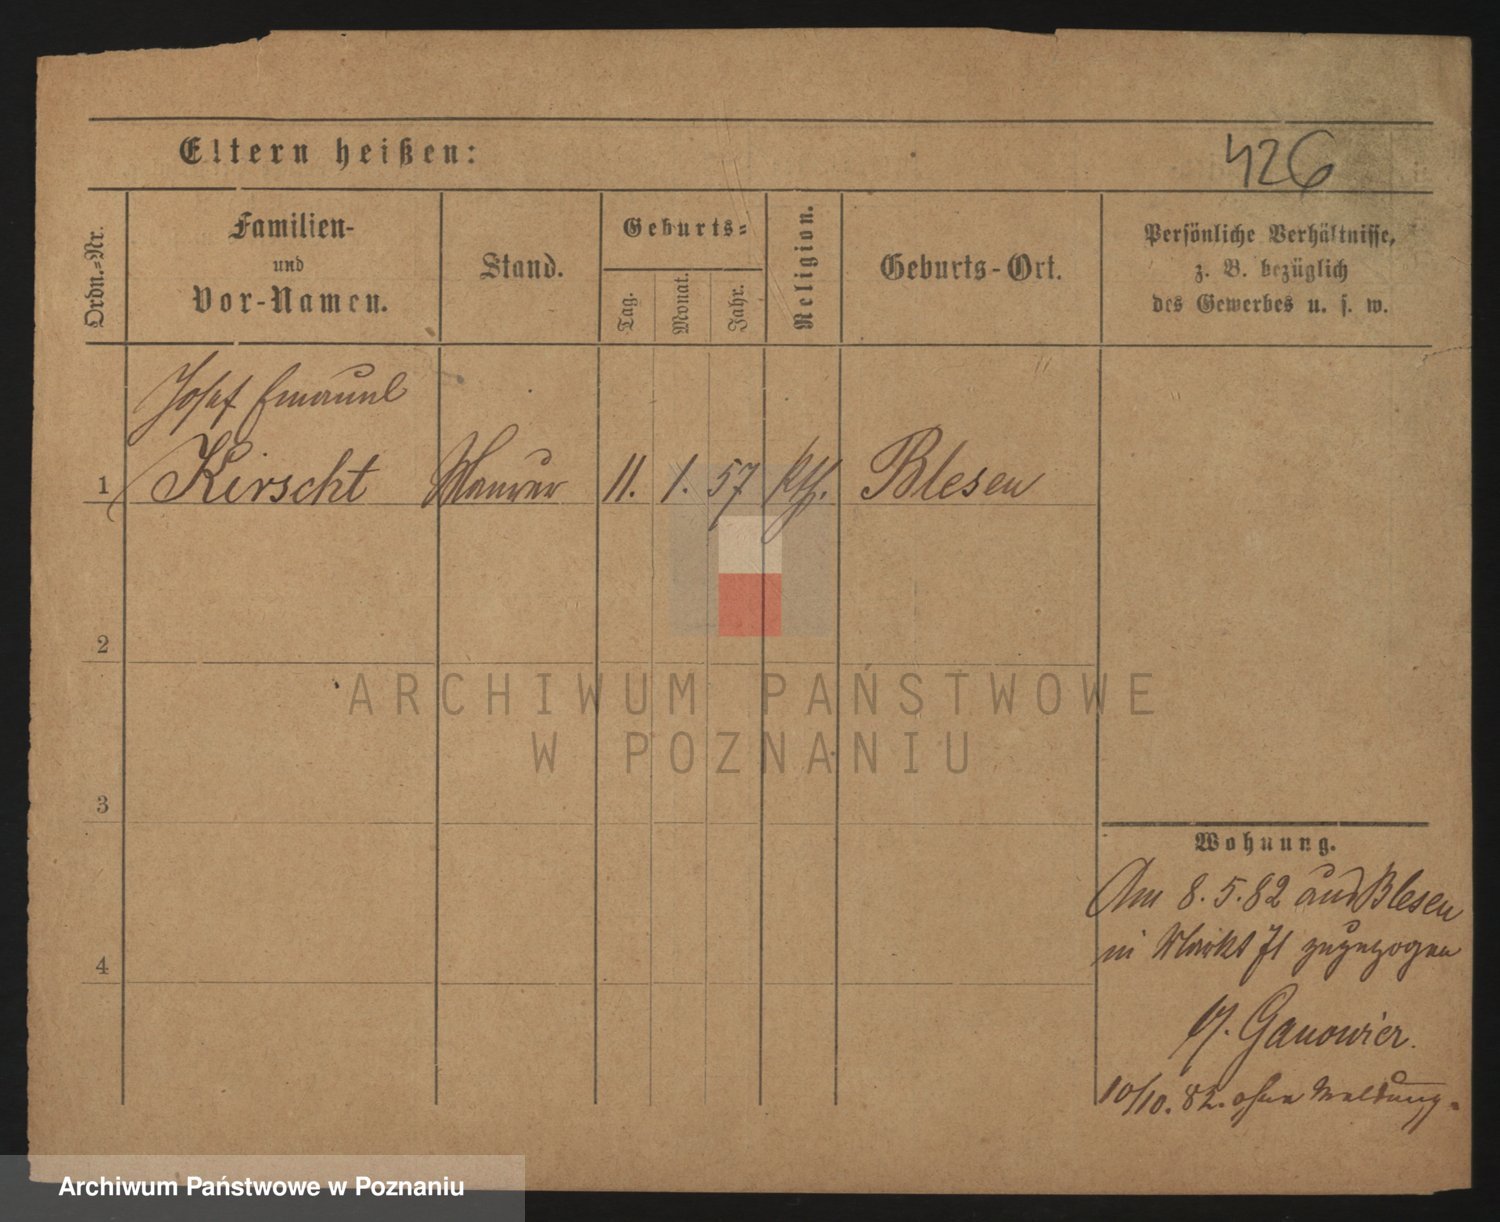 Eltern heißen:
426
Ordn.-Nr.
Familien-
und
Vor-Namen.
Stand.
Geburts-
Tag.
Monat.
Jahr.
Religion.
Geburts-Ort.
Persönliche Verhältnisse,
z. B. bezüglich
des Gewerbes u. s. w.
Josef Emanuel
1 Kirscht Maurer 11. 1. 57 kth. Blesen
2
ARCHIWUM PAŃSTWOWE
W POZNANIU
3
Wohnung.
Am 8.5.82 aus Blesen
in Markt 71 zugezogen
4
Ganowicz.
10/10.82. ohne Meldung.
Archiwum Państwowe w Poznaniu